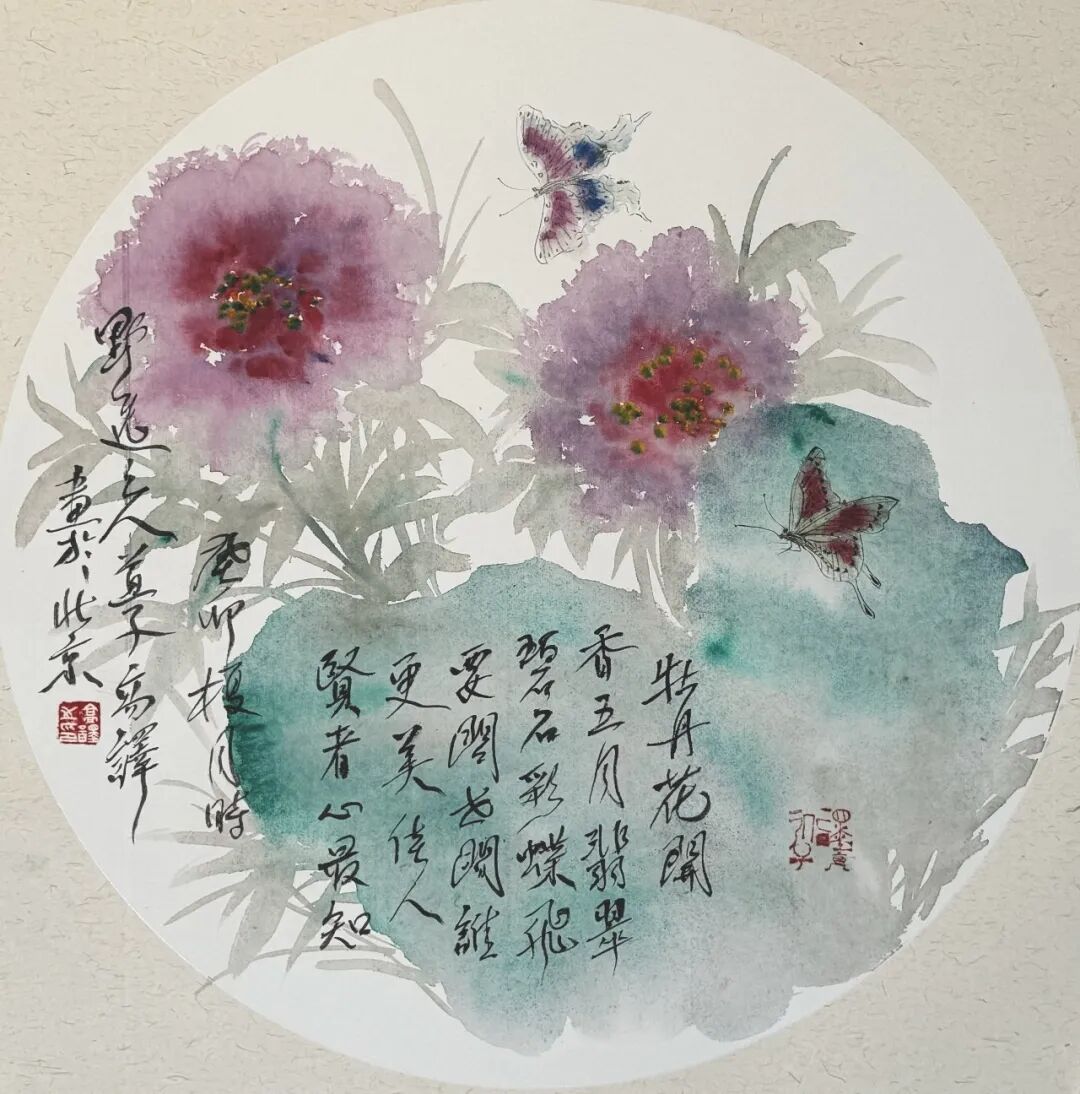 牡丹花開
香五月翡翠
碧石彩蝶飛
要問世間誰
更美佳人
賢者心最知
癸卯榎月時
野逸之人草子高譯
畫於北京